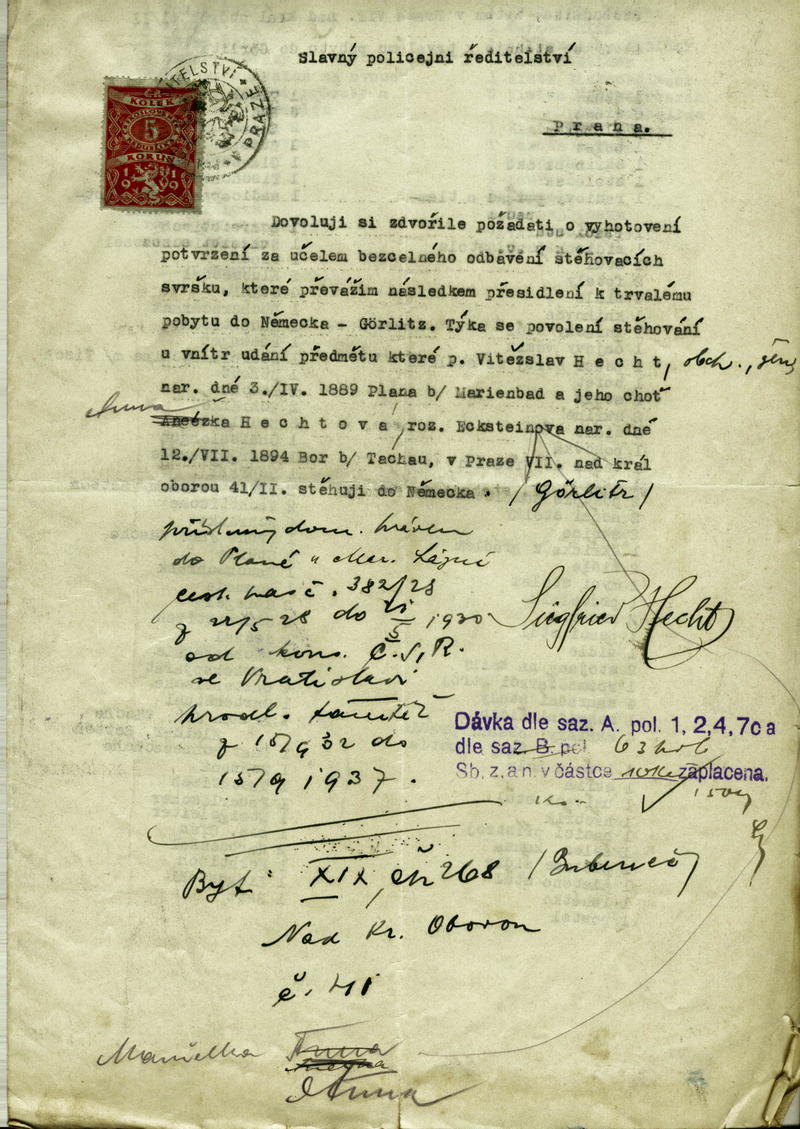 Slavný policejni ředitelství
Praha.
ITELSTVÍ
V PRAZE
KOLEK
5
KORUN
1919
Dovoluji si zdvořile požádati o vyhotovení
potvrzení za účelem bezcelného odbávéní stěhovacích
svršku, které převážim následkem přesidlení k trvalému
pobytu do Německa - Görlitz. Týka se povolení stěhování
u vnítr udání předmětu které p. Vitězslav H e c h t, obch.,
nar. dné 3./IV. 1889 Plana b/ Marienbad a jeho choť
Anna
Anežka H e c h t o v a, roz. Ecksteinova nar. dné
12./VII. 1894 Bor b/ Tachau, v Praze VII. nad král
oborou 41/II. stěhuji do Německa. / Görlitz /
dom. práven
do Plané u Mar. Lázní
cest. pas č. 382/28
z 22/5 28 do 1930
od kons. Č.S.R.
ve Vratislavi
prodl. tamtéž
z 15/9 32 do
15/9 1937.
Siegfried Hecht
Dávka dle saz. A. pol. 1, 2,4,7c a
dle saz. B. pol.
Sb. z. a n. v částce zaplacena.
Byt: XIX, čp 268 (Bubeneč)
Nad Kr. Oborou
č. 41
Manželka Anna
Anna